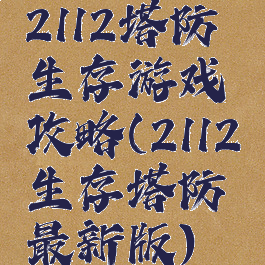 2112塔防
生存游戏
攻略(2112
生存塔防
最新版)